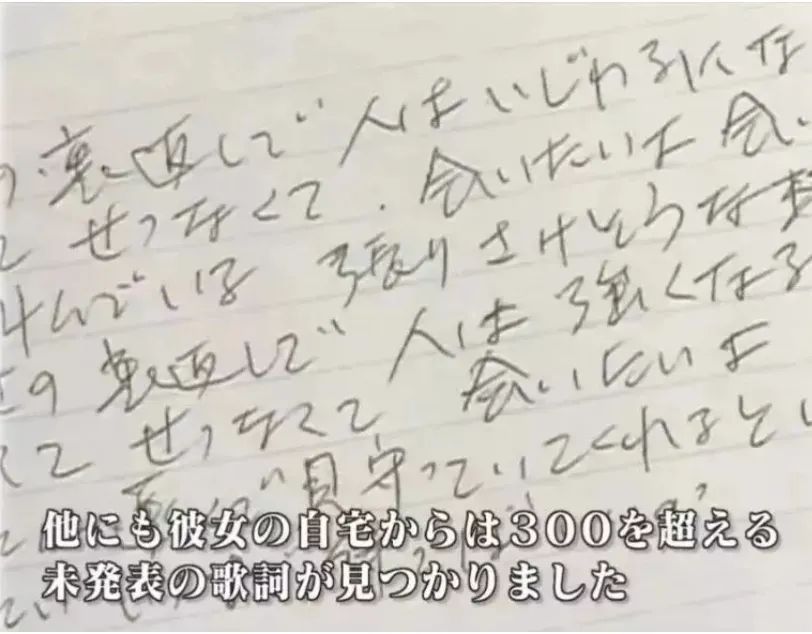 の裏返しで 人はいじわるにな
て せつなくて.会いたいよ 会い
叫んでいる 張りさけそうな
の裏返しで 人は強くなる
くて せつなくて 会いたいよ
見守っていてくれると
他にも彼女の自宅からは３００を超える
未発表の歌詞が見つかりました